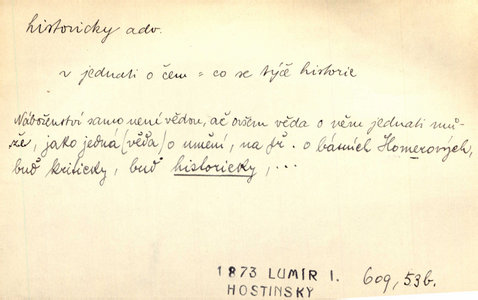 historicky adv.
v jednati o čem = co se týče historie
Náboženství samo není vědou, ač ovšem věda o něm jednati mů-
že, jako jedná (věda) o umění, na př. o básních Homerových,
buď kriticky, buď historicky, ...
1873 LUMÍR I. 609, 53b.
HOSTINSKÝ